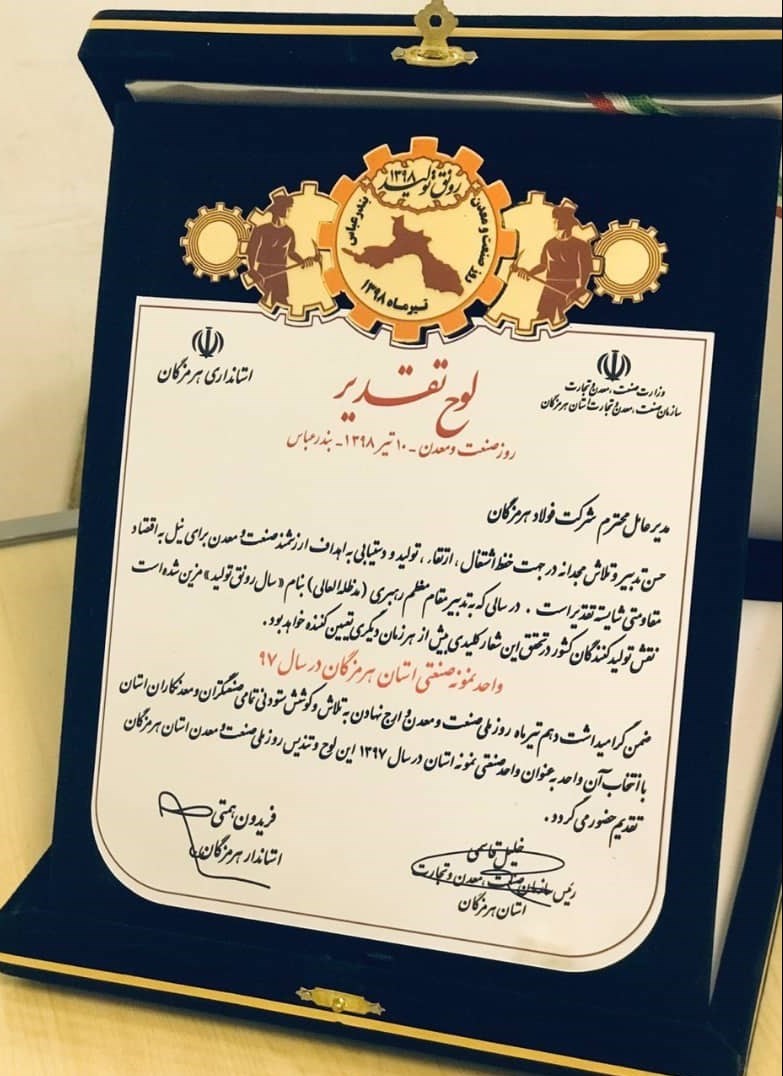 رونق تولید
۱۳۹۸
روز صنعت و معدن
بندرعباس
تیرماه ۱۳۹۸
وزارت صنعت، معدن و تجارت
سازمان صنعت، معدن و تجارت استان هرمزگان
استانداری هرمزگان
لوح تقدیر
روز صنعت و معدن - ۱۰ تیر ۱۳۹۸ - بندرعباس
مدیرعامل محترم شرکت فولاد هرمزگان
حسن تدبیر و تلاش مجدانه در جهت حفظ اشتغال، ارتقاء، تولید و دستیابی به اهداف ارزشمند صنعت و معدن برای نیل به اقتصاد
مقاومتی شایسته تقدیر است. در سالی که به تدبیر مقام معظم رهبری (مدظله العالی) بنام «سال رونق تولید» مزین شده است
نقش تولیدکنندگان کشور در تحقق این شعار کلیدی بیش از هر زمان دیگری تعیین کننده خواهد بود.
واحد نمونه صنعتی استان هرمزگان در سال ۹۷
ضمن گرامیداشت دهم تیرماه روز ملی صنعت و معدن و ارج نهادن به تلاش و کوشش ستودنی تمامی صنعتگران و معدنکاران استان
با انتخاب آن واحد به عنوان واحد صنعتی نمونه استان در سال ۱۳۹۷ این لوح و تندیس روز ملی صنعت و معدن استان هرمزگان
تقدیم حضور می گردد.
خلیل قاسمی
رئیس سازمان صنعت، معدن و تجارت
استان هرمزگان
فریدون همتی
استاندار هرمزگان